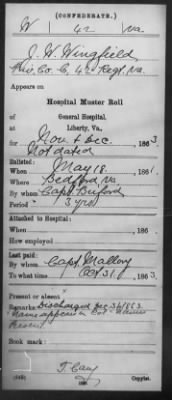 (CONFEDERATE.)
W 42 Va.
J. W. Wingfield
Pvt. Co. C, 42 Regt. Va.
Appears on
Hospital Muster Roll
of
General Hospital,
Liberty, Va.,
for Nov & Dec, 1863
Not dated
Enlisted:
When May 18, 1861.
Where Bedford Va
By whom Capt Buford
Period 3 yrs
Attached to Hospital:
When , 186
How employed
Last paid:
By whom Capt. Mallory
To what time Oct 31, 1863.
Present or absent
Remarks: Discharged Dec 1863.
Name appears in Col. Names
Present
Book mark:
Copyist.